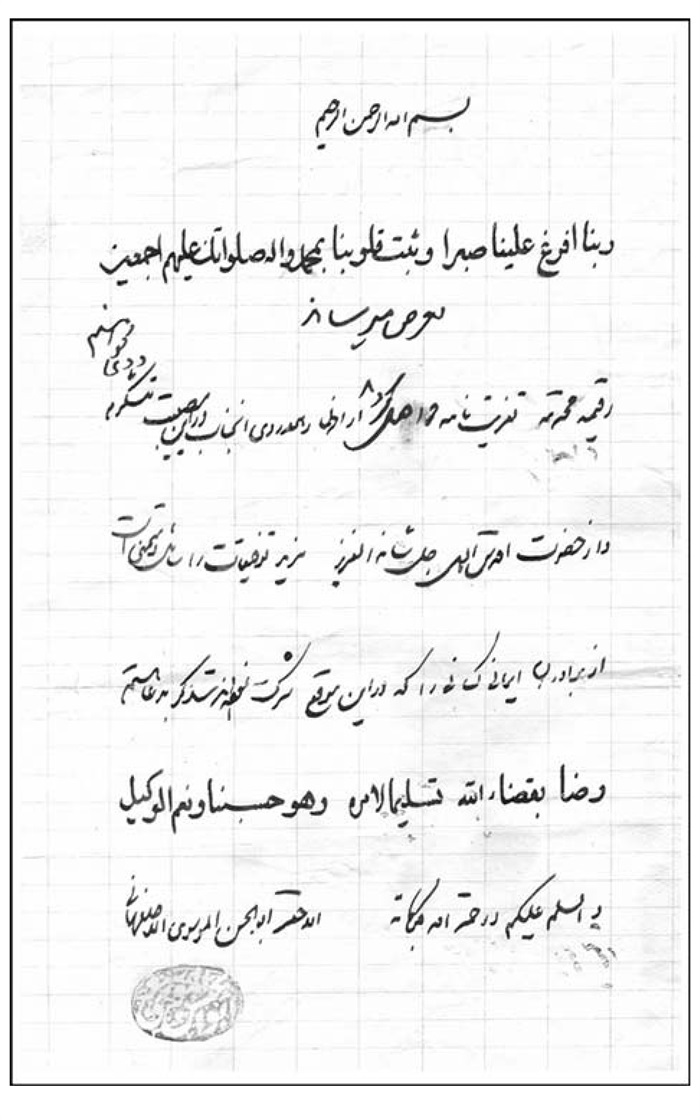 بسم الله الرحمن الرحیم
ربنا افرغ علینا صبرا و ثبت قلوبنا بمحمد واله صلواتك علیهم اجمعین
بعرض میرساند
رقیمه محترمه تعزیت نامه واصل گردید از اظهار همدردی آنجناب دراین مصیبت متشکرم
و از حضرت اقدس الهی جل شانه العزیز مزید توفیقات را سائل و متمنی است
از برادران ایرانی کسانی را که در این موقع شرکت نموده‌اند متذکر به دعا هستم
رضا بقضاء الله تسلیما لامره وهو حسبنا ونعم الوكیل
و السلام علیکم و رحمة الله و برکاته الاحقر ابوالحسن الموسوی الاصفهانی